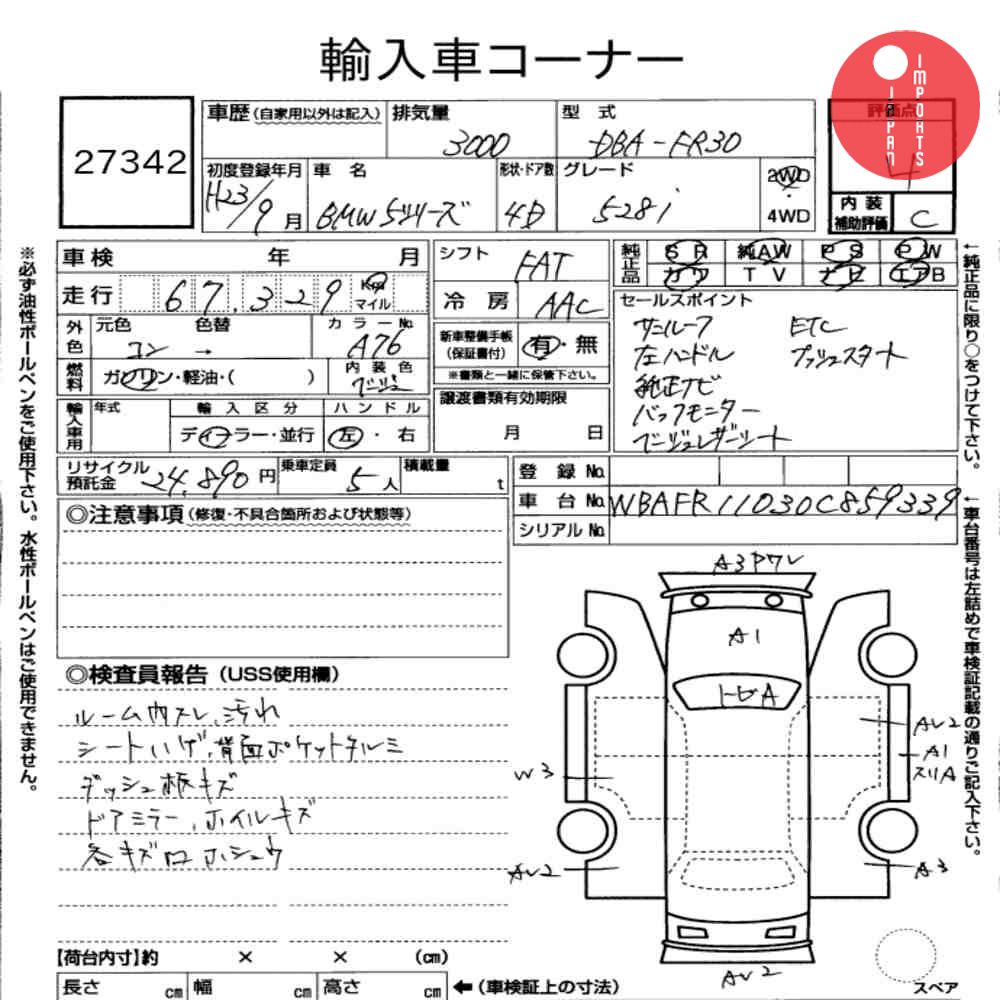 輸入車コーナー
JAPAN IMPORTS
27342
車歴(自家用以外は記入) 排気量 3000 型式 DBA-FR30
評価点 4
初度登録年月 H23/9月 車名 BMW5シリーズ 形状・ドア数 4D グレード 528i 2WD・4WD
内装補助評価 C
※必ず油性ボールペンをご使用下さい。水性ボールペンはご使用できません。
車検 年 月
走行 67,329 Km マイル
外色 元色 コン 色替 → カラーNo. A76
燃料 ガソリン・軽油・( ) 内装色 ベージュ
輸入車用 年式 輸入区分 ディーラー・並行 ハンドル 左・右
シフト FAT
冷房 AAC
新車整備手帳(保証書付) 有・無
※書類と一緒に保管下さい。
譲渡書類有効期限 月 日
純正品 SR 純AW PS PW
カワ TV ナビ エアB
セールスポイント
サンルーフ ETC
左ハンドル プッシュスタート
純正ナビ
バックモニター
ベージュレザーシート
←純正品に限り○をつけて下さい。
リサイクル預託金 24,890円 乗車定員 5人 積載量 t
登録No.
車台No. WBAFR11030C859339
シリアルNo.
←車台番号は左詰めで車検証記載の通りご記入下さい。
◎注意事項(修復・不具合箇所および状態等)
◎検査員報告(USS使用欄)
ルーム内スレ、汚れ
シートハゲ、背面ポケットタルミ
ダッシュ板キズ
ドアミラー、ホイルキズ
各キズ口ホシュウ
A3Pワレ
A1
トビA
AU2
A1
スリA
W3
AU2
A3
AU2
スペア
【荷台内寸】約 × × (cm)
長さ cm 幅 cm 高さ cm ←(車検証上の寸法)